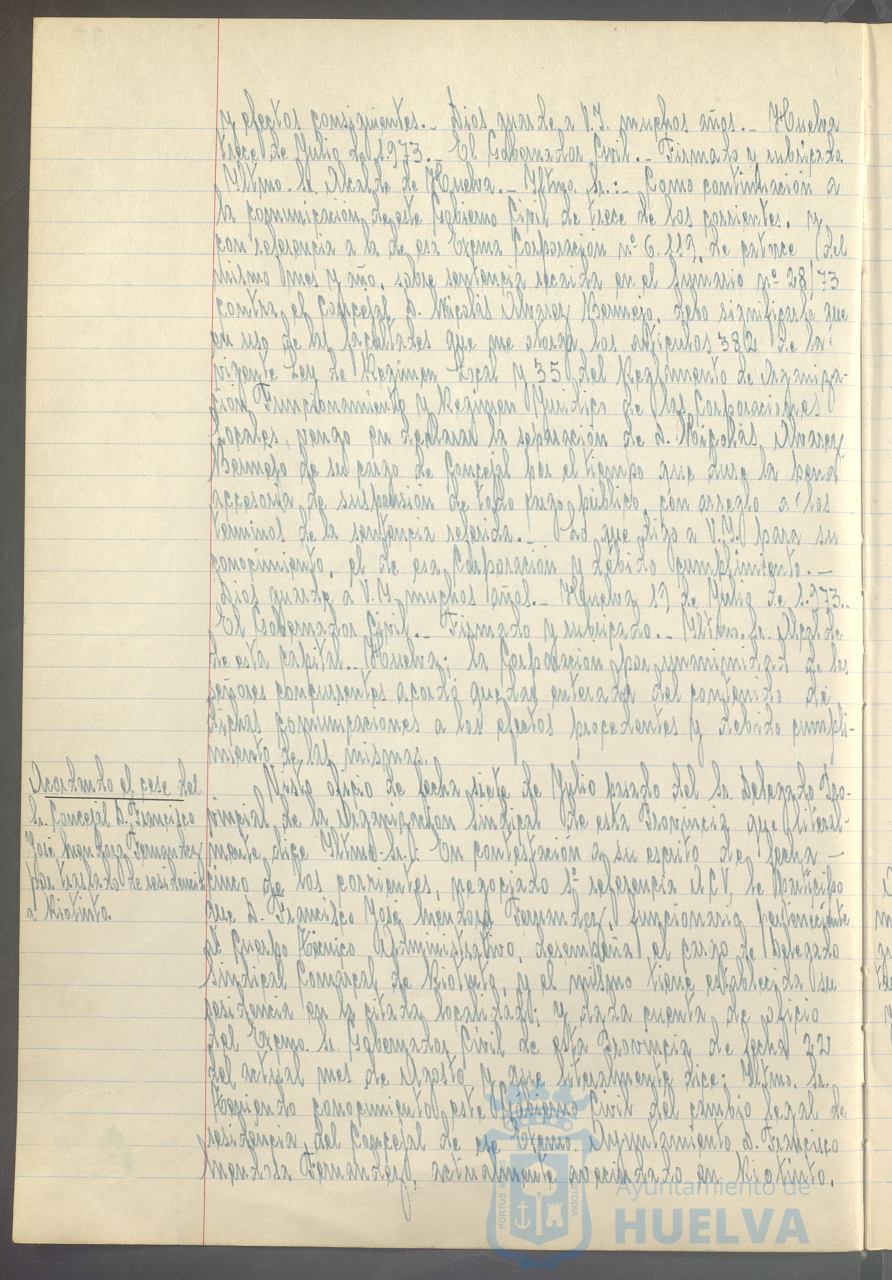 y efectos consiguientes.- Dios guarde a V.I. muchos años.- Huelva
trece de Julio de 1.973.- El Gobernador Civil.- Firmado y rubricado.
Iltmo. Sr. Alcalde de Huelva.- Iltmo. Sr.:- Como continuación a
la comunicación de este Gobierno Civil de trece de los corrientes, y
con referencia a la de esa Excma Corporación nº 6.113, de catorce del
mismo mes y año, sobre sentencia recaida en el Sumario nº 28/73
contra el Concejal D. Nicolás Alvarez Bermejo, debo significarle que
en uso de las facultades que me otorga los articulos 382 de la
vigente Ley de Régimen Local y 35 del Reglamento de Organiza-
ción Funcionamiento y Régimen Juridico de las Corporaciones
Locales, vengo en declarar la separación de D. Nicolás Alvarez
Bermejo de su cargo de Concejal por el tiempo que dure la pena
accesoria de suspensión de todo cargo público, con arreglo a los
terminos de la sentencia referida.- Lo que digo a V.I. para su
conocimiento, el de esa Corporación y debido cumplimiento.-
Dios guarde a V.I. muchos años.- Huelva 19 de Julio de 1.973.-
El Gobernador Civil.- Firmado y rubricado.- Iltmo. Sr. Alcalde
de esta capital.- Huelva; la Corporación por unanimidad de los
señores concurrentes acordó quedar enterada del contenido de
dichas comunicaciones a los efectos procedentes y debido cumpli-
miento de las mismas.
Acordando el cese del
Sr. Concejal D. Francisco
José Mendoza Fernandez
por traslado de residencia
a Riotinto.
Visto oficio de fecha siete de Julio pasado del Sr. Delegado Pro-
vincial de la Organización Sindical de esta Provincia que literal-
mente dice Iltmo. Sr.: En contestación a su escrito de fecha -
cinco de los corrientes, negociado 1º referencia le participo
que D. Francisco José Mendoza Fernandez, funcionario perteneciente
al Cuerpo Técnico Administrativo, desempeña el cargo de Delegado
Sindical Comarcal de Riotinto, y el mismo tiene establecida su
residencia en la citada localidad; y dada cuenta de oficio
del Excmo. Sr. Gobernador Civil de esta Provincia de fecha 22
del actual mes de Agosto y que literalmente dice: Iltmo. Sr.
Teniendo conocimiento este Gobierno Civil del cambio legal de
residencia, del Concejal de ese Excmo. Ayuntamiento D. Francisco
Mendoza Fernandez, actualmente avecindado en Riotinto,
PORTUS
CUSTODIA
Ayuntamiento de
HUELVA